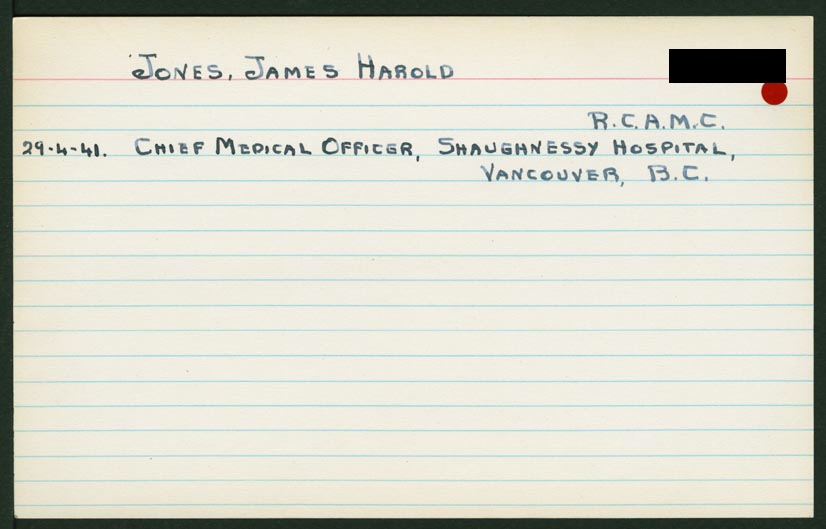 JONES, JAMES HAROLD
R.C.A.M.C.
29-4-41. CHIEF MEDICAL OFFICER, SHAUGHNESSY HOSPITAL,
VANCOUVER, B.C.